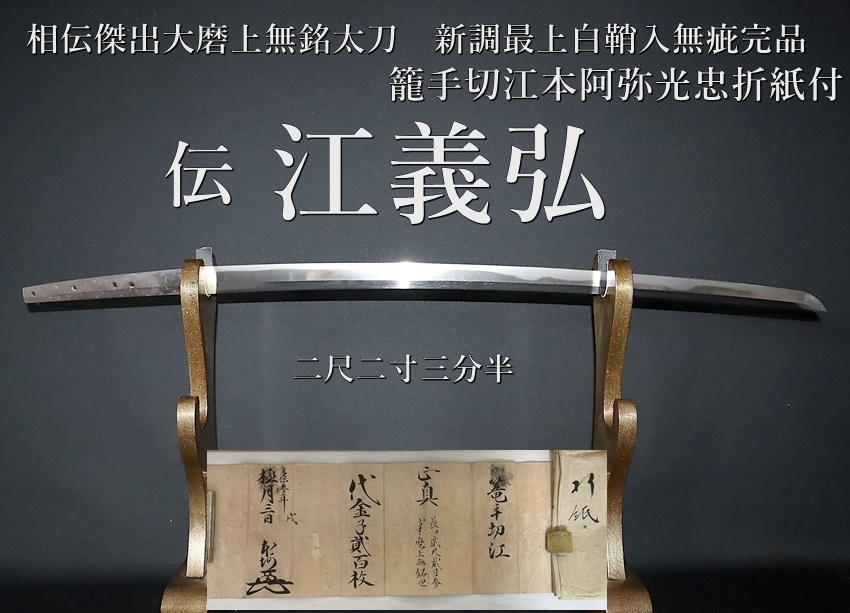 相伝傑出大磨上無銘太刀 新調最上白鞘入無疵完品
籠手切江本阿弥光忠折紙付
伝 江義弘
二尺二寸三分半
折紙
篭手切江
正真
長サ貳尺貳寸参
分半磨上無銘也
代金子貳百枚
極月三日